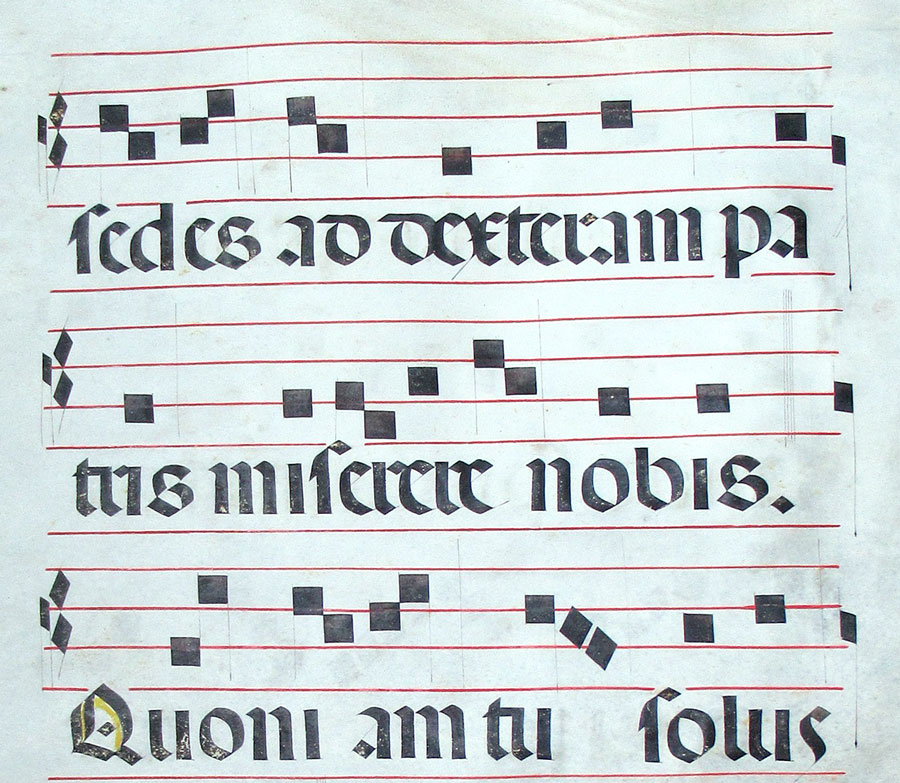 sedes ad dexteram pa
tris miserere nobis.
Quoniam tu solus